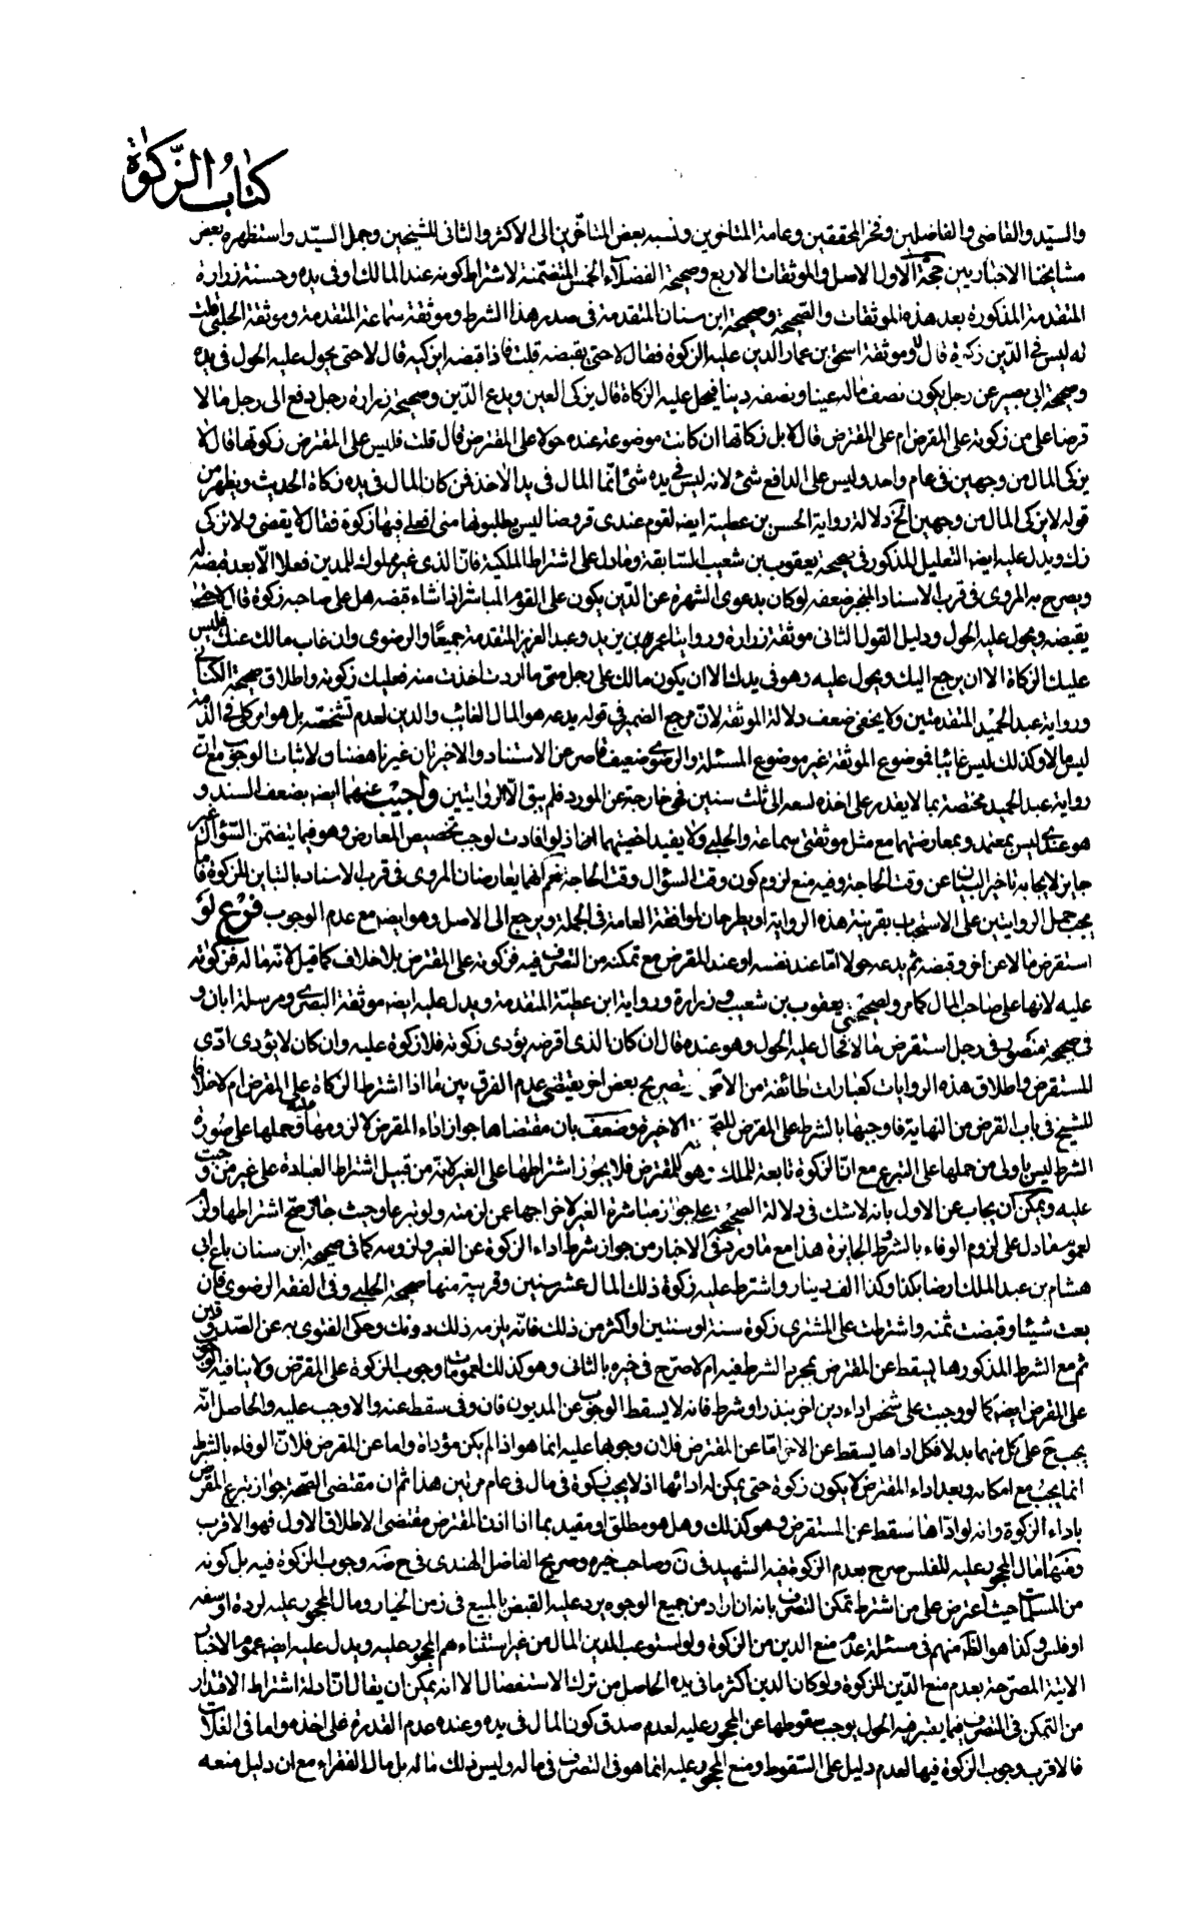 كتاب الزّكوٰة
والسيّد والقاضى والفاضلين وفخر المحققين وعامة المتاخرين ونسبه بعض المتاخّرين الى الاكثر والثانى للشيخين وجمل السيّد واستظهره بعض
مشايخنا الاخباريين حجّة الاول الاصل والموثقات الاربع وصحيحة الفضلاء الخمس المتضمّنة لاشتراط كونه عند المالك او فى يده وحسنة زرارة
المتقدمة المذكورة بعد هذه الموثقات والصّحيحة وصحيحة ابن سنان المتقدمة فى صدر هذا الشرط وموثقة سماعة المتقدمة وموثقة الحلبى قلت
له ليس فى الدّين زكوة قال لا وموثقة اسحق بن عمار الدين عليه الزكوة فقال لا حتى يقبضه قلت فاذا قبضه ايزكيه قال لا حتى يحول عليه الحول فى يده
وصحيحة ابى بصير عن رجل يكون نصف ماله عينا ونصفه دينا فيحل عليه الزكاة قال يزكى العين ويدع الدّين وصحيحة زرارة رجل دفع الى رجل مالا
قرضا على من زكوته على المقرض ام على المقترض قال لا بل زكاتها ان كانت موضوعة عنده حولا على المقترض قال قلت فليس على المقرض زكوتها قال لا
يزكى المال من وجهين فى عام واحد وليس على الدافع شئ لانه ليس فى يده شئ انّما المال فى يد الاخذ فمن كان المال فى يده زكاة الحديث ويظهر من
قوله لا يزكى المال من وجهين الخ دلالة رواية الحسن بن عطية ايضا لقوم عندى قروضا ليس يطلبونها منى افعلى فيها زكوة فقال لا يقضى ولا تزكى
زك ويدل عليه ايضا التعليل المذكور فى صحيحة يعقوب بن شعيب السّابقة وما دل على اشتراط الملكية فان الذى غير مملوك للمدين فعلا الّا بعد قبضه له
ويصرح به المروى فى قرب الاسناد المنجبر ضعفه لو كان بدعوى الشهرة عن الدّين يكون على القوم المياسير اذا شاء قبضه هل على صاحبه زكوة قال لا حتى
يقبضه ويحول عليه الحول ودليل القول الثانى موثقة زرارة وروايتا عمر بن يزيد وعبد العزيز المتقدمة جميعًا والرضوى وان غاب مالك عنك فليس
عليك الزكاة الا ان يرجع اليك ويحول عليه وهو فى يدك الا ان يكون مالك على رجل متى ما اردت اخذت منه فعليك زكوته واطلاق صحيحة الكنانى
ورواية عبد الحميد المتقدمتين ولا يخفى ضعف دلالة الموثقة لانّ مرجع الضمير فى قوله يدعه هو المال الغائب والدين لعدم تشخصّه بل هو امر كلى فى الذمة
ليس مالا وكذلك ليس غائبا فموضوع الموثقة غير موضوع المسئلة والرضوى ضعيف قاصر عن الاستناد والاخرتان غير ناهضتا ولا ثبات الوجوب مع انّ
رواية عبد الحميد مختصة بما لا يقدر على اخذه لسعه الى ثلث سنين فهى خارجة عن المورد فلم يبق الّا الروايتين واجيب عنهما ايضا بضعف السند و
هو عندى ليس بمعتمد وبمعارضتهما مع مثل موثقتى سماعة والحلبى ولا يفيد اخصيتهما اذ لو افادت لوجب تخصيص المعارض وهو فيما يتضمّن السّؤال غير
جايز لايجابه تاخير البيان عن وقت الحاجة وفيه منع لزوم كون وقت السّؤال وقت الحاجة نعم انهما يعارضان المروى فى قرب الاسناد بالتباين للزكوة فاما
يجب حمل الروايتين على الاستحباب بقرينة هذه الرواية او يطرحان لموافقة العامة فى الجملة ويرجع الى الاصل وهو ايضا مع عدم الوجوب فرع لو
استقرض مالا عن اخر وقبضه ثم يدعه حولا امّا عند نفسه او عند المقرض مع تمكنه من التصرف فيه فزكوته على المقترض بلا خلاف كما قيل لانّه ماله فزكوته
عليه لانها على صاحب المال كما مر ولصحيحتى يعقوب بن شعيب وزرارة ورواية ابن عطيّة المتقدمة ويدل عليه ايضا موثقة البصرى ومرسلة ابان و
فى صحيحة منصور فى رجل استقرض مالا فحال عليه الحول وهو عنده قال ان كان الذى اقرضه يؤدى زكوته فلا زكوة عليه وان كان لا يؤدى ادّى
المستقرض واطلاق هذه الروايات كعبارات طائفة من تصريح بعض اخر يقتضى عدم الفرق بين ما اذا اشترط الزكاة على المقرض ام لا خلافا
للشيخ فى باب القرض من النهاية فاوجبها بالشرط على المقرض الاخيرة وضعف بان مقتضاها جواز اداء المقرض لا لزومها عليه وحملها على صورة
الشرط ليس باولى من حملها على التبرع مع انّ الزكوة تابعة للملك وهو للمقترض فلا يجوز اشتراطها على الغير لانّه من قبيل اشتراط العبادة على غير من وجبت
عليه ويمكن ان يجاب عن الاول بانه لا شك فى دلالة الصحيحة على جواز مباشرة الغير لاخراجها عمن لزمته ولو تبرعا وحيث جاز صحّ اشتراطها ولزم
لعموم ما دل على لزوم الوفاء بالشروط الجايزة هذا مع ما ورد فى الاخبار من جواز شرط اداء الزكوة عن الغير ولزومه كما فى صحيحة ابن سنان باع ابى
هشام بن عبد الملك ارضا بكذا وكذا الف دينار واشترط عليه زكوة ذلك المال عشر سنين وقريبة منها صحيحة الحلبى وفى الفقه الرضوى فان
بعت شيئا وقبضت ثمنه واشترطت على المشترى زكوة سنة او سنتين او اكثر من ذلك فانّه يلزمه ذلك دونك وحكى الفتوى به عن الصّدوقين
ثم مع الشرط المذكور هل يسقط عن المقترض بمجرد الشرط فيه ام لا صرّح فى خيره بالثانى وهو كذلك لعمومات وجوب الزكوة على المقترض ولا ينافيه الوجوب
على المقرض ايضا كما لو وجبت على شخص اداء دين اخر بنذر او شرط فانه لا يسقط الوجوب عن المديون فان وفى سقط عنه والا وجب عليه والحاصل انّه
يجب ح على كل منهما بدلا فكل اداها يسقط عن الاخر امّا عن المقترض فلان وجوبها عليه انما هو اذا لم يكن مؤداة واما عن المقرض فلانّ الوفاء بالشرط
انما يجب مع امكانه وبعد اداء المقترض لا يكون زكوة حتى يمكن له ادائها اذ لا يجب زكوة فى مال فى عام مرتين هذا ثم ان مقتضى الصّحيحة جواز تبرع المقرض
باداء الزكوة وانه لو ادّاها سقط عن المستقرض وهو كذلك وهل هو مطلق او مقيد بما اذا اذن المقترض مقتضى الاطلاق الاول فهو الاقرب
ومنها مال المحجور عليه للفلس صرح بعدم الزكوة فيه الشهيد فى ن وصاحب خيره وصريح الفاضل الهندى فى ح ضه وجوب الزكوة فيه بل كونه
من المسلمات حيث اعترض على من اشترط تمكن التصرف بانه ان اراد من جميع الوجوه يرد عليه القبض بالمبيع فى زمن الخيار ومال المحجور عليه لردة او سفه
او فلس وكذا هو الظ منهم فى مسئلة عدم منع الدين من الزكوة ولو استوعب الدين المال من غير استثناءهم المحجور عليه ويدل عليه ايضا عموم الاخبار
الاتية المصرّحة بعدم منع الدّين للزكوة ولو كان الدين اكثر ما فى يده الحاصل من ترك الاستفصال الا انه يمكن ان يقال ان ادلة اشتراط الاقتدار
من التمكن فى التصرف فيما يعتبر فيه الحول يوجب سقوطها عن المحجور عليه لعدم صدق كون المال فى يده وعنده وعدم القدرة على اخذه واما فى الغلات
فالاقرب وجوب الزكوة فيها لعدم دليل على السّقوط ومنع المحجور عليه انما هو فى التصرف فى ماله وليس ذلك ماله بل مال الفقراء مع ان دليل منعه